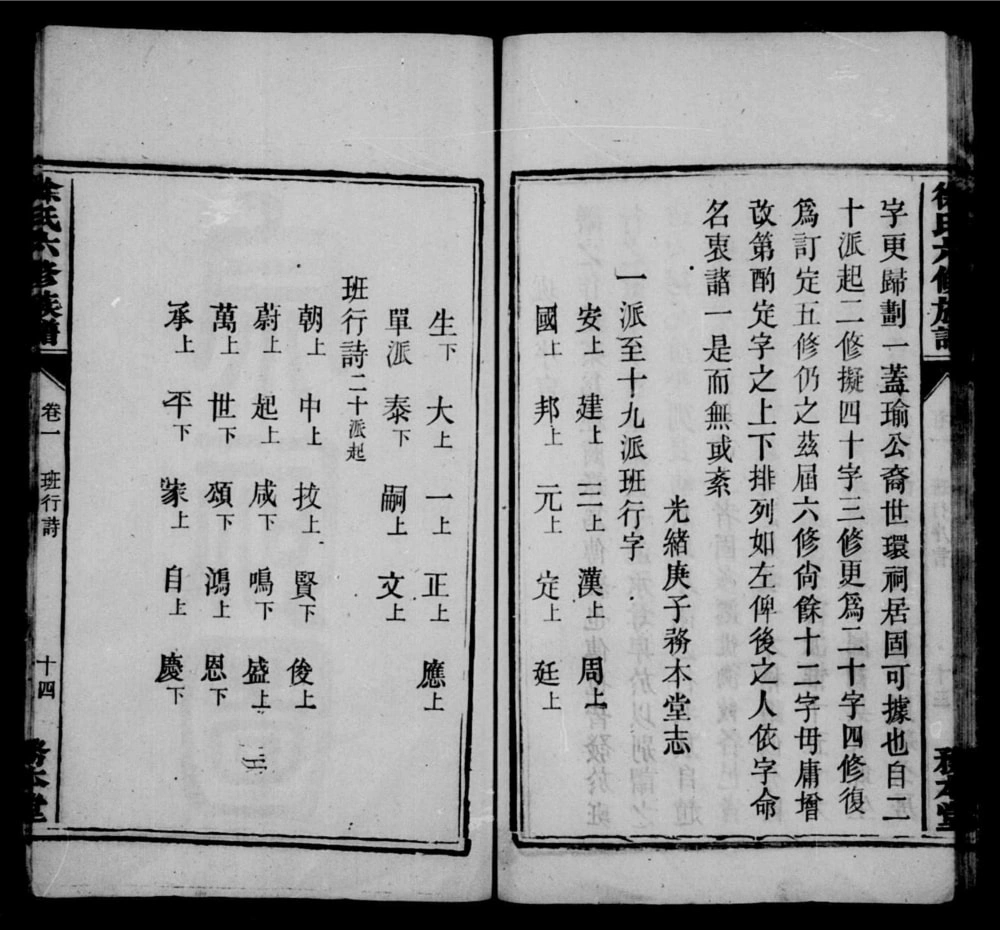 徐氏六修族譜
務本堂
字更歸劃一蓋瑜公裔世環祠居固可據也自二
十派起二修擬四十字三修更爲二十字四修復
爲訂定五修仍之茲届六修尙餘十二字毋庸增
改第酌定字之上下排列如左俾後之人依字命
名衷諸一是而無或紊
光緒庚子務本堂志
一派至十九派班行字
安上 建上 三上 漢上 周上
國上 邦上 元上 定上 廷上
生下 大上 一上 正上 應上
單派 泰下 嗣上 文上
班行詩二十派起
朝上 中上 技上 賢下 俊上
蔚上 起上 咸下 鳴下 盛上
萬上 世下 頌下 鴻上 恩下
承上 平下 家上 自上 慶下
徐氏六修族譜
卷一 班行詩
十四
務本堂